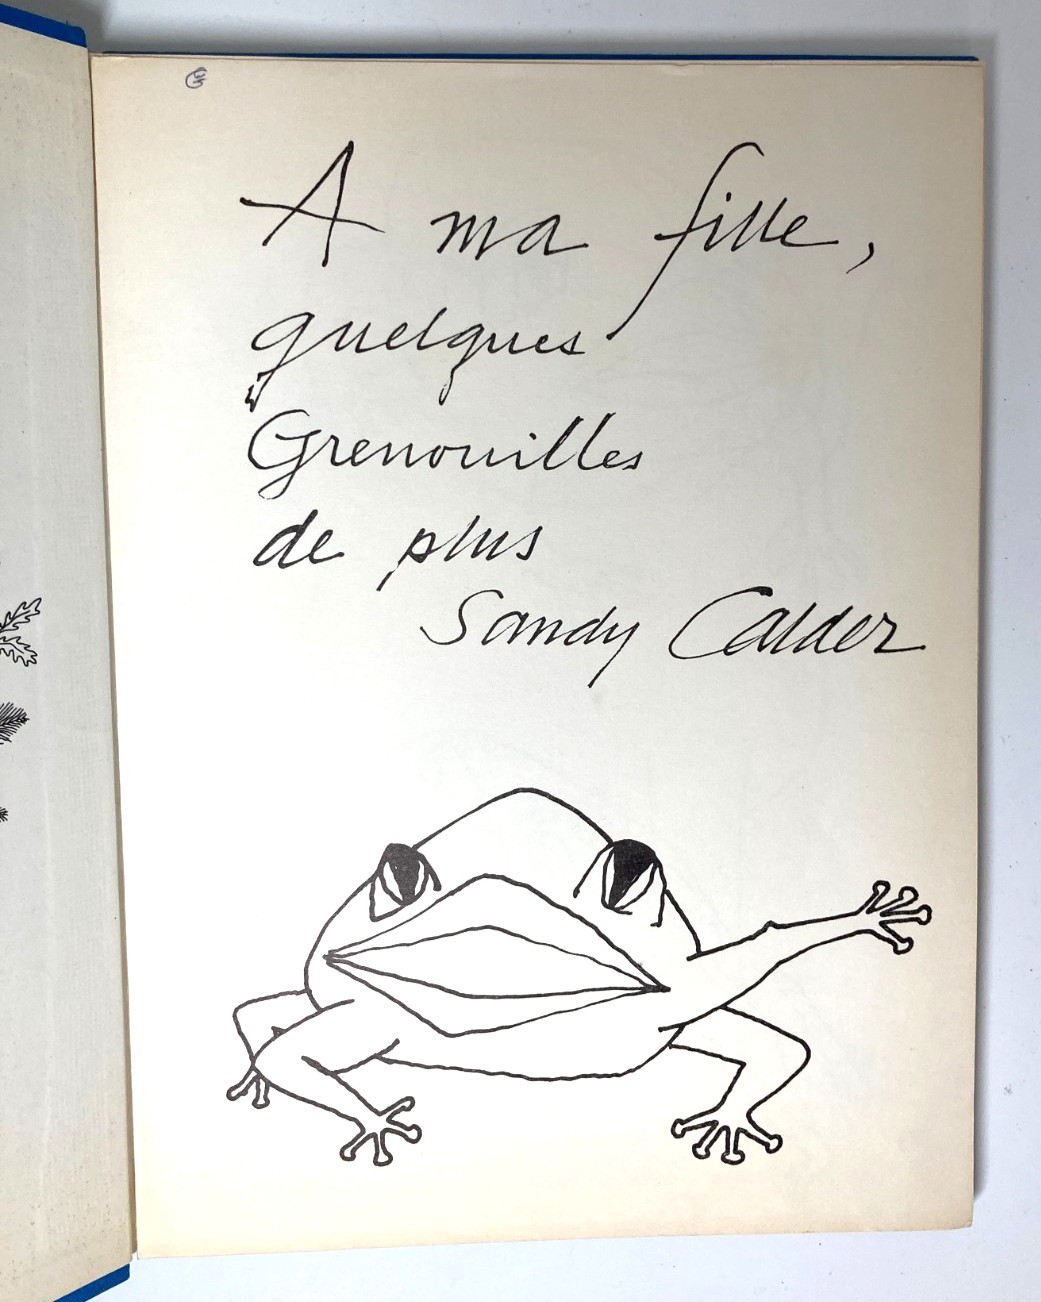 A ma fille,
quelques
Grenouilles
de plus
Sandy Calder